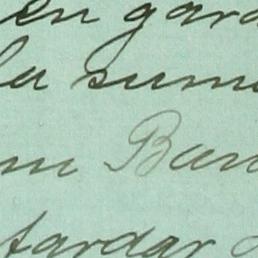 en gara
la suma
m Ban
tardar